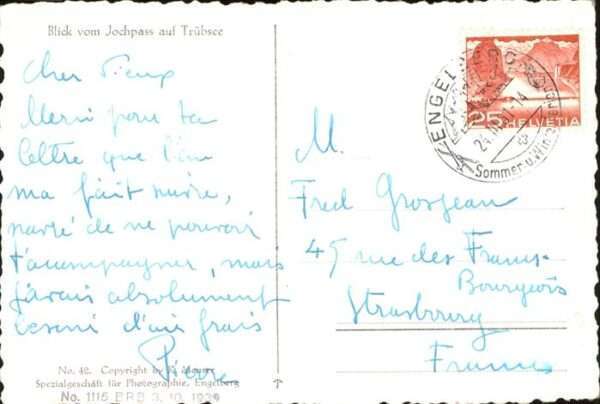 Blick vom Jochpass auf Trübsee
Cher vieux
Merci pour ta
lettre que l'on
ma fait suivre,
navré de ne pouvoir
t'accompagner, mais
j'avais absolument
besoin d'air frais
Pierre
No. 42. Copyright by K. Meuser
Spezialgeschäft für Photographie, Engelberg
No. 1115 BRB 3. 10. 1939
25 HELVETIA
ENGELBERG
Sommer- u. Winter
M.
Fred Grosjean
45 rue des Francs-
Bourgeois
Strasbourg
France